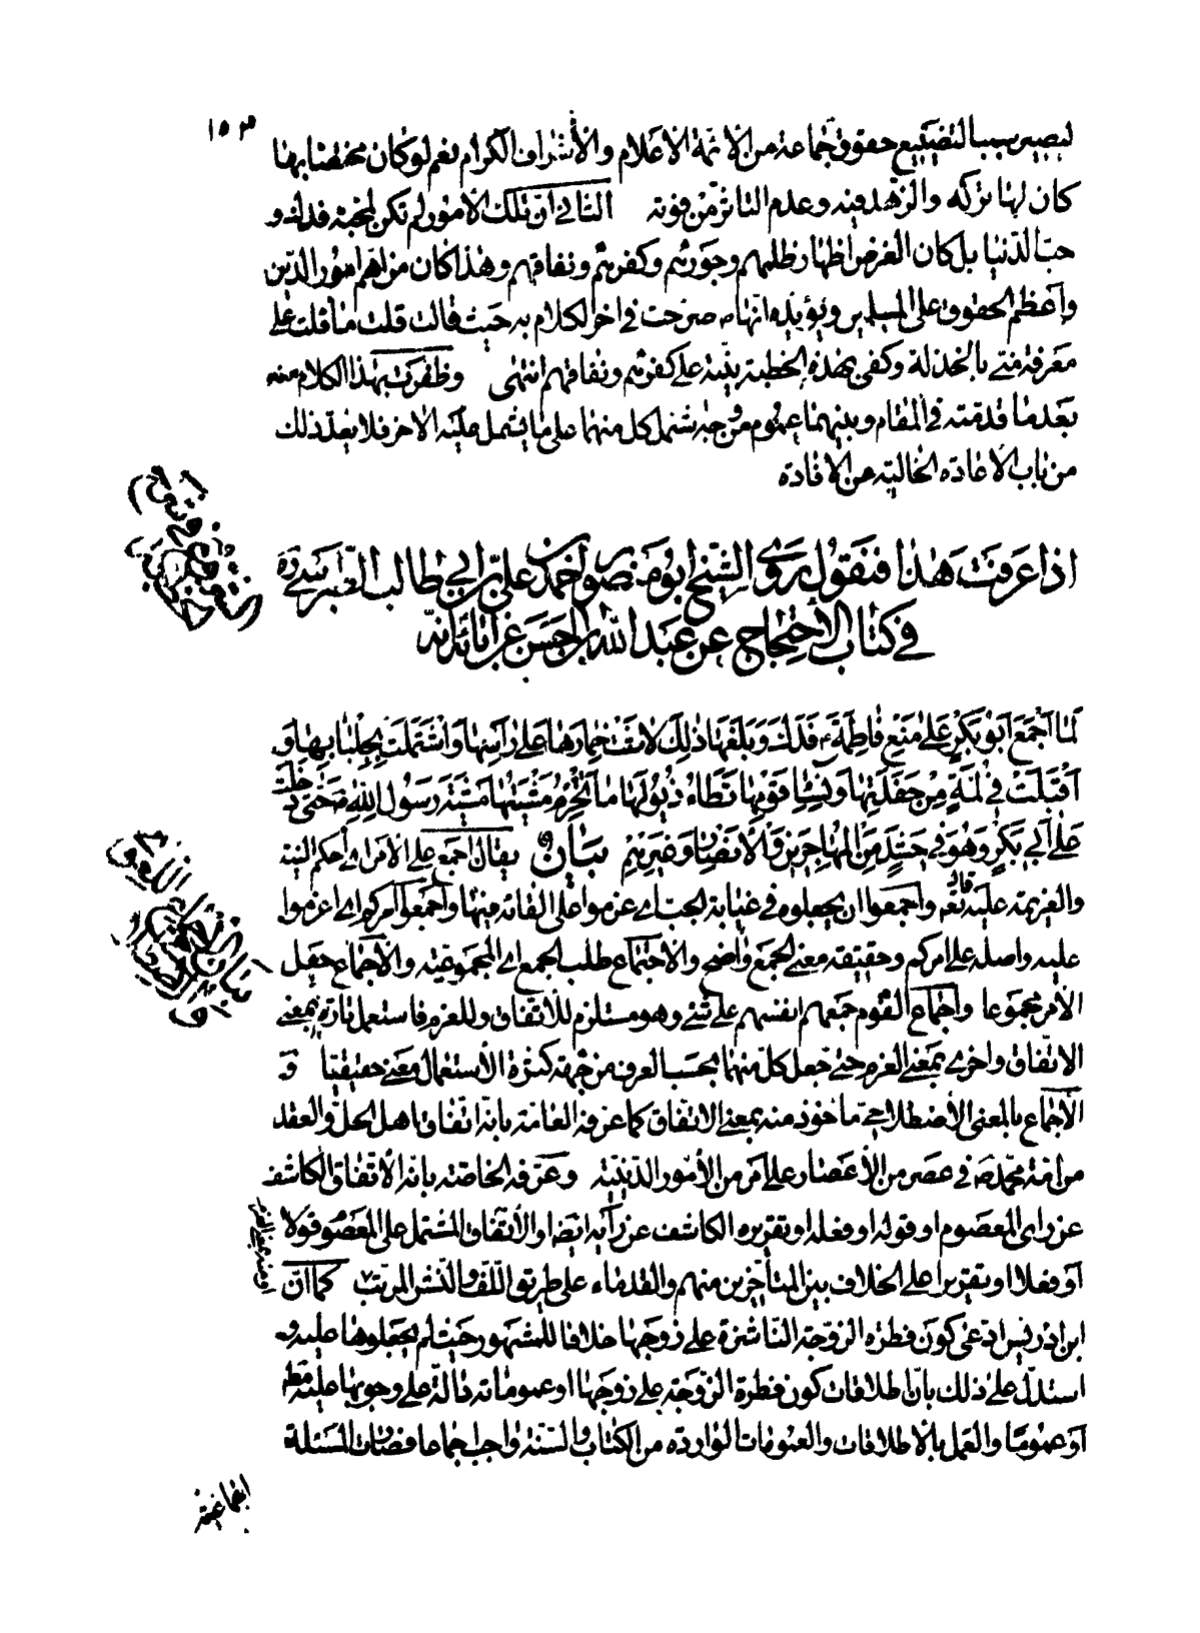 ١٥٣
ليصير سببا لتضييع حقوق جماعة من الأئمة الاعلام والأشراف الكرام نعم لو كان مختصا بها
كان لها تركه والزهد فيه وعدم التاثر من فوته الثاني ان تلك الامور لم تكن لمحبة فدك و
حب الدنيا بل كان الغرض اظهار ظلمهم وجورهم وكفرهم ونفاقهم وهذا كان من اهم امور الدين
واعظم الحقوق على المسلمين ويؤيده انها ص صرحت في اخر الكلام به حيث قالت قلت ما قلت على
معرفة مني بالخذلة وكفى بهذه الخطبة بينة على كفرهم ونفاقهم انتهى وظفرت بهذا الكلام منه
بعد ما قدمته في المقام وبينهما عموم من وجه يشمل كل منهما على ما يشمل عليه الاخر فلا يعد ذلك
من باب الاعادة الخالية من الافادة
اذا عرفت هذا فنقول روى الشيخ ابو منصور احمد بن علي بن ابي طالب الطبرسي ره
في كتاب الاحتجاج عن عبد الله بن الحسن عن ابائه انه
لما اجمع ابو بكر على منع فاطمة ع فدك وبلغها ذلك لاثت خمارها على رأسها واشتملت بجلبابها و
اقبلت في لمة من حفدتها ونساء قومها تطاء ذيولها ما تخرم مشيتها مشية رسول الله ص حتى دخلت
على ابي بكر وهو في حشد من المهاجرين والأنصار وغيرهم بيان يقال اجمع على الأمر اي احكم النية
والعزيمة عليه قال تعه واجمعوا ان يجعلوه في غيابة الجب اي عزموا على القائه فيها واجمعوا امركم اي اعزموا
عليه واصله على امركم وحقيقة معنى الجمع واضح والاجتماع طلب الجمع اي المجموعية والاجماع جعل
الأمر مجموعا واجماع القوم جمعهم انفسهم على شئ وهو مستلزم للاتفاق وللعزم فاستعمل تارة بمعنى
الاتفاق واخرى بمعنى العزم حتى جعل كل منهما بحسب العرف من جهة كثرة الأستعمال معنى حقيقيا و
الأجماع بالمعنى الأصطلاحي ماخوذ منه بمعنى الاتفاق كما عرفه العامة بانه اتفاق اهل الحل والعقد
من امة محمد ص في عصر من الأعصار على امر من الأمور الدينية وعرفه الخاصة بانه الاتفاق الكاشف
عن راى المعصوم او قوله او فعله او تقريره الكاشف عن رأيه ايضا او الأتفاق المشتمل على المعصوم قولا
او فعلا او تقريرا على الخلاف بين المتأخرين منهم والقدماء على طريق اللف والنشر المرتب كما ان
ابن ادريس ادعى كون فطرة الزوجة الناشزة على زوجها خلافا للمشهور حيث لم يجعلوها عليه و
استدل على ذلك بان اطلاقات كون فطرة الزوجة على زوجها او عموماته دالة على وجوبها عليه مطه
او عموما والعمل بالاطلاقات والعمومات الواردة من الكتاب والسنة واجب اجماعا فصارت المسئلة
اجماعية